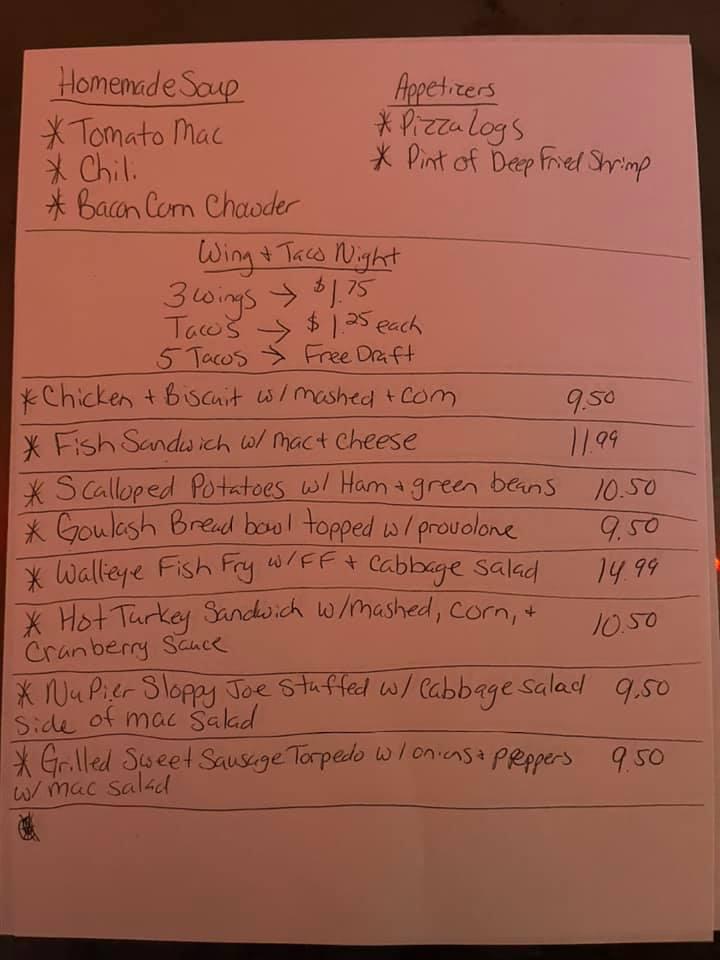 Homemade Soup
* Tomato Mac
* Chili
* Bacon Corn Chowder
Appetizers
* Pizza Logs
* Pint of Deep Fried Shrimp
Wing + Taco Night
3 wings → $1.75
Tacos → $1.25 each
5 Tacos → Free Draft
* Chicken + Biscuit w/ mashed + corn 9.50
* Fish Sandwich w/ mac + cheese 11.99
* Scalloped Potatoes w/ Ham + green beans 10.50
* Goulash Bread bowl topped w/ provolone 9.50
* Walleye Fish Fry w/ FF + Cabbage salad 14.99
* Hot Turkey Sandwich w/ mashed, corn, + 10.50
Cranberry Sauce
* NuPier Sloppy Joe Stuffed w/ Cabbage salad 9.50
Side of mac Salad
* Grilled Sweet Sausage Torpedo w/ onions + peppers 9.50
w/ mac salad